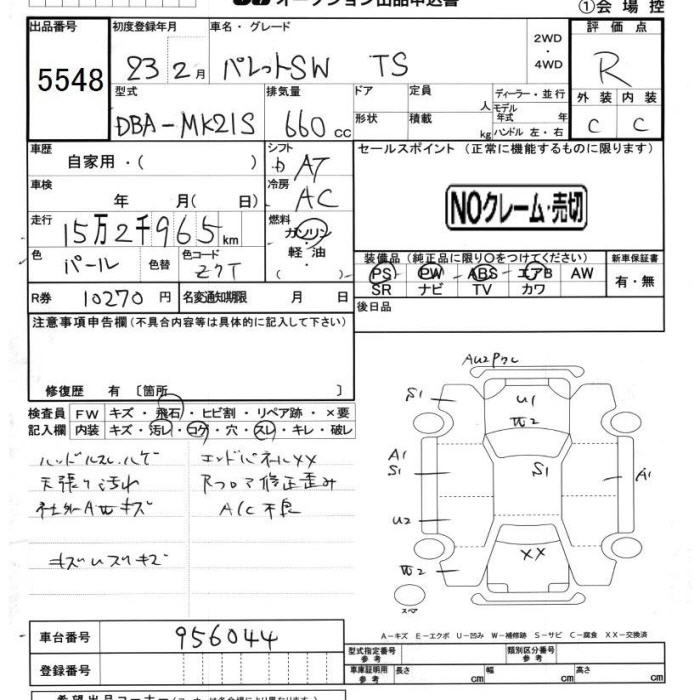 オークション出品申込書
①会場控
出品番号 初度登録年月 車名・グレード 評価点
5548 23 2月 パレットSW TS 2WD ・ 4WD R
型式 排気量 ドア 定員 人 ディーラー・並行 外装 内装
DBA-MK21S 660cc 形状 積載 kg モデル年式 年 ハンドル 左・右 C C
車歴 シフト セールスポイント (正常に機能するものに限ります)
自家用・( ) AT
車検 冷房
年 月( 日) AC
NOクレーム・売切
走行 燃料
15万2千965km ガソリン・軽油 ( )
装備品 (純正品に限り〇をつけてください) 新車保証書
色 色替 色コード
パール Z7T
PS PW ABS エアB AW 有・無
SR ナビ TV カワ
R券 10270円 名変通知期限 月 日 後日品
注意事項申告欄(不具合内容等は具体的に記入して下さい)
修復歴 有 〔箇所 〕
検査員 FW キズ・飛石・ヒビ割・リペア跡・×要
記入欄 内装 キズ・汚レ・コゲ・穴・スレ・キレ・破レ
ハンドルスレ.ハゲ エンドパネルXX
天張り汚れ Rフロア修正歪み
社外AWキズ A/C不良
キズUスリキズ
S1
U1
A1
S1
S1
A1
U2
XX
スペア
車台番号 956044
登録番号
A-キズ E-エクボ U-凹み W-補修跡 S-サビ C-腐食 XX-交換済
型式指定番号 参考 類別区分番号 参考
車庫証明用 参考 長さ cm 幅 cm 高さ cm
希望出品コーナー